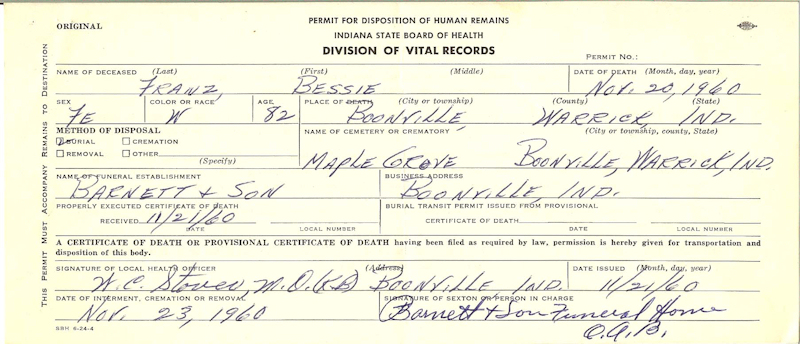 ORIGINAL
PERMIT FOR DISPOSITION OF HUMAN REMAINS
INDIANA STATE BOARD OF HEALTH
DIVISION OF VITAL RECORDS
PERMIT NO.:
THIS PERMIT MUST ACCOMPANY REMAINS TO DESTINATION
NAME OF DECEASED (Last) (First) (Middle) DATE OF DEATH (Month, day, year)
FRANZ, BESSIE NOV. 20, 1960
SEX COLOR OR RACE AGE PLACE OF DEATH (City or township) (County) (State)
FE W 82 BOONVILLE, WARRICK, IND.
METHOD OF DISPOSAL NAME OF CEMETERY OR CREMATORY (City or township, county, State)
BURIAL CREMATION
REMOVAL OTHER
(Specify)
MAPLE GROVE BOONVILLE, WARRICK, IND.
NAME OF FUNERAL ESTABLISHMENT BUSINESS ADDRESS
BARNETT + SON BOONVILLE, IND.
PROPERLY EXECUTED CERTIFICATE OF DEATH BURIAL TRANSIT PERMIT ISSUED FROM PROVISIONAL
RECEIVED 11/21/60 CERTIFICATE OF DEATH
DATE LOCAL NUMBER DATE LOCAL NUMBER
A CERTIFICATE OF DEATH OR PROVISIONAL CERTIFICATE OF DEATH having been filed as required by law, permission is hereby given for transportation and
disposition of this body.
SIGNATURE OF LOCAL HEALTH OFFICER (Address) DATE ISSUED (Month, day, year)
W.C. Stover, M.D. (KB) BOONVILLE, IND. 11/21/60
DATE OF INTERMENT, CREMATION OR REMOVAL SIGNATURE OF SEXTON OR PERSON IN CHARGE
NOV. 23, 1960 Barnett + Son Funeral Home
O.A.B.
SBH 6-24-4